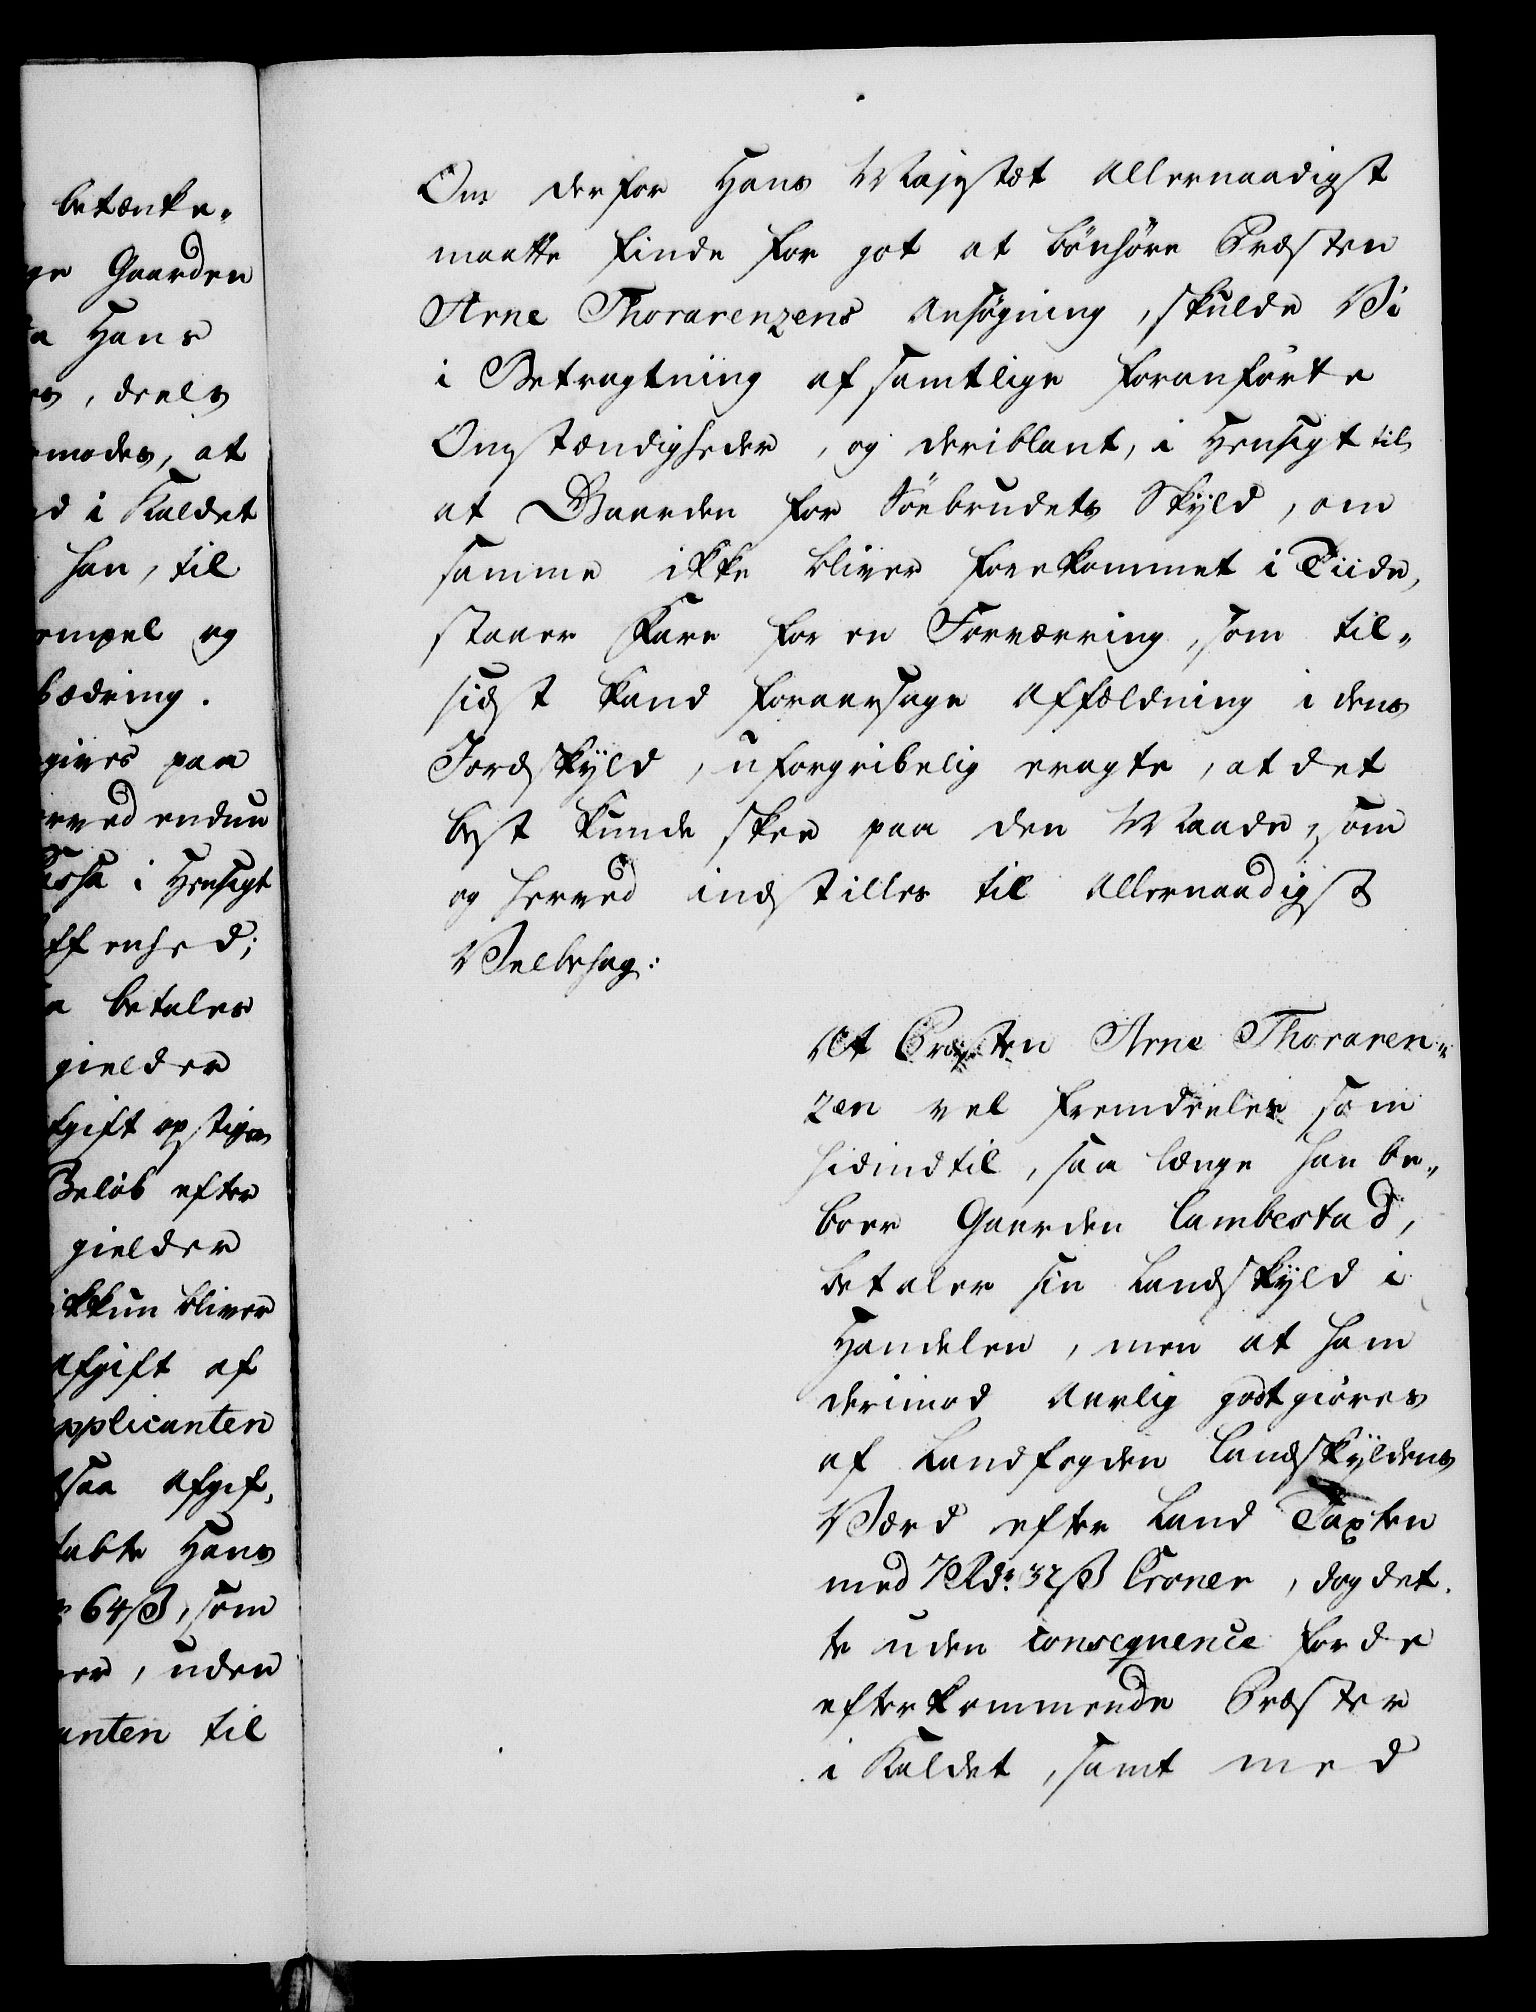 betænke-
ge Gaarden
a Hans
es, deels
modes, at
d i Kaldet
han, til
empel og
bedring.
gives paa
rved endnu
assa i Hensigt
ffenhed;
a betales
gielder
fgift opstiger
Beløb efter
gielder
ikkun bliver
Afgift af
pplicanten
saa Afgif-
tabte Hans
64 ß, som
er, uden
anten til
Om derfor Hans Majestæt Allernaadigst
maatte finde for got at bønhøre Præsten
Arne Thorarenzens Ansøgning, skulde Vi
i Betragtning af samtlige foranførte
Omstændigheder, og deriblant, i Hensigt til
at Gaarden for Söebrudets Skÿld, om
samme ikke bliver forekommet i Tiide,
staaer Fare for en Forværring, som til-
sidst kand foraarsage Affældning i dens
Jordskÿld, uforgribelig eragte, at det
best kunde skee paa den Maade, som
og herved indstilles til Allernaadigst
Velbehag:
At Præsten Arne Thoraren-
zen vel fremdeeles som
hidindtil, saa længe han be-
boer Gaarden Lambestad,
betaler sin Landskÿld i
Handelen, men at ham
derimod Aarlig godtgiøres
af Landfogden Landskÿldens
Værd efter Land Taxten
med 7 Rdr. 32 ß Croner, dog det-
te uden consequence for de
efterkommende Præster
i Kaldet, samt med